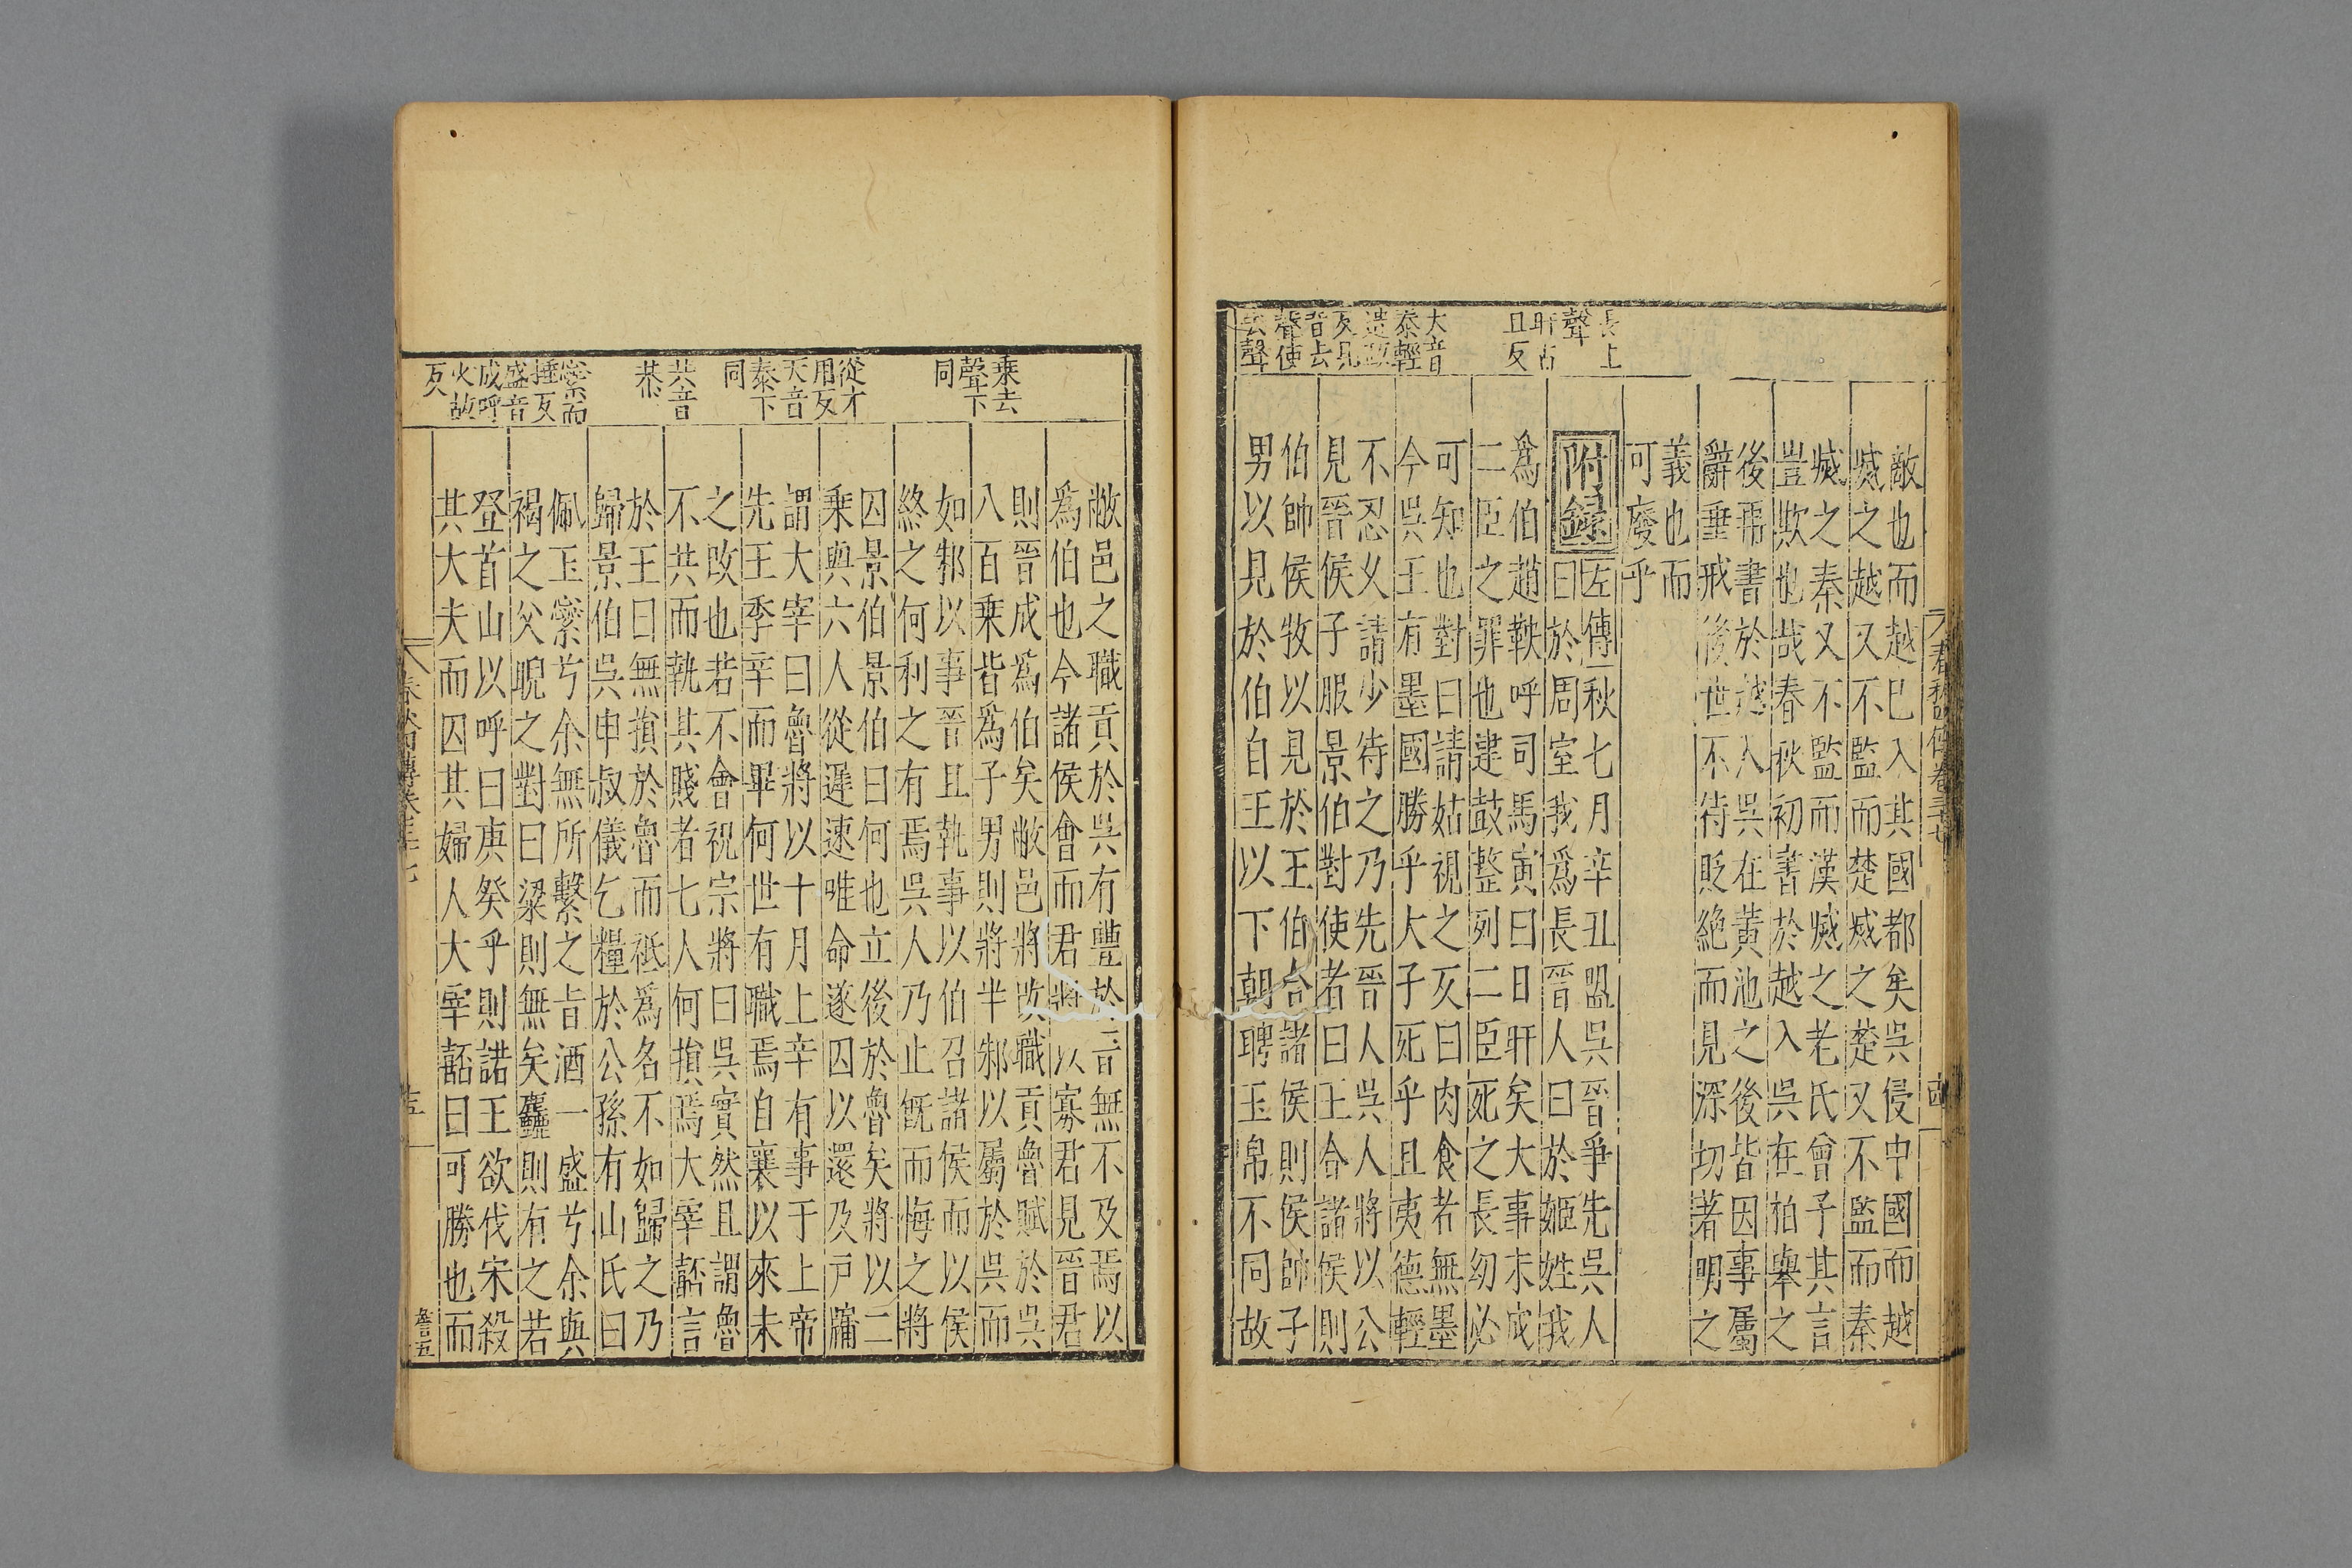 長上
聲
旰古
旦反
大音
泰輕
遣政
反見
音去
聲使
去聲
敵也而越已入其國都矣吳侵中國而越
滅之越又不監而楚滅之楚又不監而秦
滅之秦又不監而漢滅之老氏曾子其言
豈欺也哉春秋初書於越入吳在柏舉之
後再書於越入吳在黃池之後皆因事屬
辭垂戒後世不待貶絕而見深切著明之
義也而
可廢乎
附録
左傳秋七月辛丑盟吳晉爭先吳人
曰於周室我爲長晉人曰於姬姓我
爲伯趙鞅呼司馬寅曰日旰矣大事未成
二臣之罪也建鼓整列二臣死之長幼必
可知也對曰請姑視之反曰肉食者無墨
今吳王有墨國勝乎大子死乎且夷德輕
不忍乆請少待之乃先晉人吳人將以公
見晉侯子服景伯對使者曰王合諸侯則
伯帥侯牧以見於王伯合諸侯則侯帥子
男以見於伯自王以下朝聘玉帛不同故
春秋四傳卷三十七
乘去
聲下
同
從才
用反
大音
泰下
同
共音
恭
縈而
捶反
盛音
成呼
火故
反
敝邑之職貢於吳有豐於晉無不及焉以
爲伯也今諸侯會而君將以寡君見晉君
則晉成爲伯矣敝邑將改職貢魯賦於吳
八百乘皆爲子男則將半邾以屬於吳而
如邾以事晉且執事以伯召諸侯而以侯
終之何利之有焉吳人乃止旣而悔之將
囚景伯景伯曰何也立後於魯矣將以二
乘與六人從遲速唯命遂囚以還及戸牖
謂大宰曰魯將以十月上辛有事于上帝
先王季辛而畢何世有職焉自襄以來未
之改也若不會祝宗將曰吳實然且謂魯
不共而執其賤者七人何損焉大宰嚭言
於王曰無損於魯而祗爲名不如歸之乃
歸景伯吳申叔儀乞糧於公孫有山氏曰
佩玉縈兮余無所繫之旨酒一盛兮余與
褐之父睨之對曰粱則無矣麤則有之若
登首山以呼曰庚癸乎則諾王欲伐宋殺
其大夫而囚其婦人大宰嚭曰可勝也而
春秋四傳卷三十七
十五
詹五